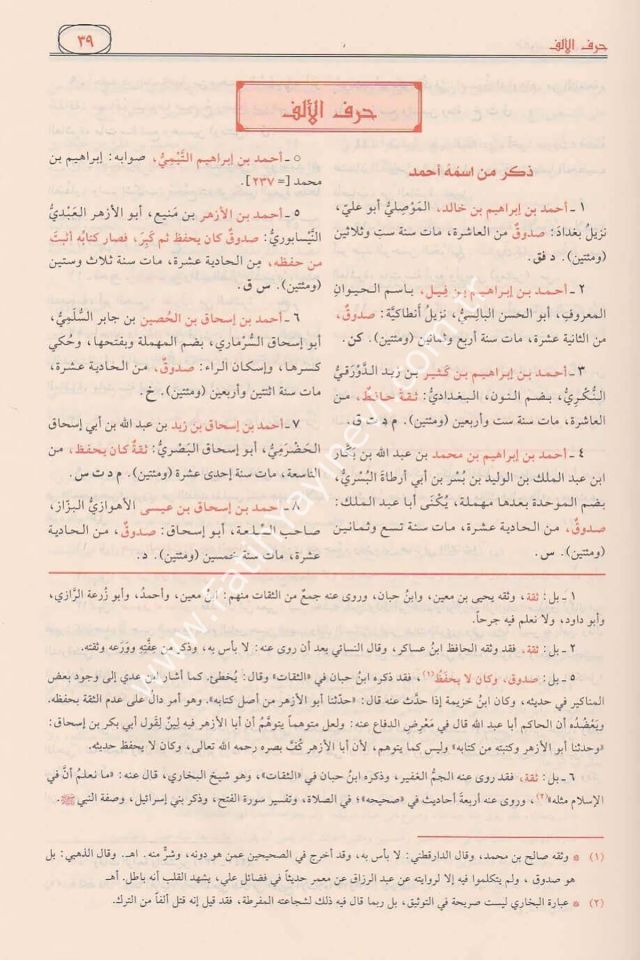 حرف الألف
٣٩
حرف الألف
ذكر من اسمُهُ أحمد
١ ـ أحمد بن إبراهيم بن خالد، المَوْصِليُّ أبو عليّ،
نزيلُ بغدادَ: صدوقٌ من العاشرة، مات سنة ست وثلاثين
(ومئتين). د فق.
٢ ـ أحمد بن إبراهيم بن فِيل، باسم الحيوان
المعروفِ، أبو الحسن البالِسيُّ، نزيل أنطاكيَّة: صدوقٌ،
من الثانية عشرة، مات سنة أربع وثمانين (ومئتين). كن.
٣ ـ أحمد بن إبراهيم بن كَثير بن زيد الدَّوْرَقيُّ
النُّكْريُّ، بضم النون، البغداديُّ: ثقةٌ حافظٌ، من
العاشرة، مات سنة ست وأربعين (ومئتين). م د ت ق.
٤ ـ أحمد بن إبراهيم بن محمد بن عبد الله بن بَكَّار
ابن عبد الملك بن الوليد بن بُسْر بن أبي أرطاةَ البُسْريُّ،
بضم الموحدة بعدها مهملة، يُكْنَى أبا عبد الملك:
صدوقٌ، من الحادية عشرة، مات سنة تسع وثمانين
(ومئتين). س.
ه ـ أحمد بن إبراهيم التَّيْميُّ، صوابه: إبراهيم بن
محمد [= ٢٣٧].
٥ ـ أحمد بن الأزهر بن مَنيع، أبو الأزهر العَبْديُّ
النَّيْسابوريُّ: صدوقٌ كان يحفظ ثم كَبِرَ، فصار كتابُه أثبتَ
من حفظه، من الحادية عشرة، مات سنة ثلاث وستين
(ومئتين). س ق.
٦ ـ أحمد بن إسحاق بن الحُصين بن جابر السُّلَميُّ،
أبو إسحاق السُّرماري، بضم المهملة وبفتحها، وحُكي
كسرها، وإسكان الراء: صدوقٌ، من الحادية عشرة،
مات سنة اثنتين وأربعين (ومئتين). خ.
٧ ـ أحمد بن إسحاق بن زيد بن عبد الله بن أبي إسحاق
الحَضْرميُّ، أبو إسحاق البَصْريُّ: ثقةٌ كان يحفظ، من
التاسعة، مات سنة إحدى عشرة (ومئتين). م د ت س.
٨ ـ أحمد بن إسحاق بن عيسى الأهوازيُّ البزَّاز،
صاحب السِّلعة، أبو إسحاق: صدوقٌ، من الحادية
عشرة، مات سنة خمسين (ومئتين). د.
١ ـ بل: ثقة، وثقه يحيى بن معين، وابنُ حبان، وروى عنه جمعٌ من الثقات منهم: ابنُ معين، وأحمدُ، وأبو زُرعة الرازي،
وأبو داود، ولا نعلم فيه جرحاً.
٢ ـ بل: ثقة، فقد وثقه الحافظ ابنُ عساكر، وقال النسائي بعد أن روى عنه: لا بأس به، وذكر من عِفَّتِهِ ووَرَعه وثقته.
٥ ـ بل: صدوق، وكان لا يحفَظُ(١)، فقد ذكره ابنُ حبان في «الثقات» وقال: يُخطئ. كما أشار ابن عدي إلى وجود بعض
المناكير في حديثه، وكان ابنُ خزيمة إذا حدَّث عنه قال: «حدّثنا أبو الأزهر من أصل كتابه». وهو أمر دال على عدم الثقة بحفظه.
ويَعْضُدُه أن الحاكم أبا عبد الله قال في مَعْرِض الدفاع عنه: ولعل متوهماً يتوهَّم أن أبا الأزهر فيه لِينٌ لقول أبي بكر بن إسحاق:
«وحدثنا أبو الأزهر وكتبته من كتابه» وليس كما يتوهم، لأن أبا الأزهر كُفَّ بصره رحمه الله تعالى، وكان لا يحفظ حديثه.
٦ ـ بل: ثقة، فقد روى عنه الجمُّ الغفير، وذكره ابنُ حبان في «الثقات»، وهو شيخ البخاري، قال عنه: «ما نعلمُ أنَّ في
الإسلام مثله»(٢)، وروى عنه أربعةَ أحاديث في «صحيحه»؛ في الصلاة، وتفسير سورة الفتح، وذكر بني إسرائيل، وصفة النبي ﷺ.
(١) * وثقه صالح بن محمد، وقال الدارقطني: لا بأس به، وقد أخرج في الصحيحين عمن هو دونه، وشرٌّ منه. اهـ. وقال الذهبي: بل
هو صدوق، ولم يتكلموا فيه إلا لروايته عن عبد الرزاق عن معمر حديثاً في فضائل علي، يشهد القلب أنه باطل. أهـ
(٢) * عبارة البخاري ليست صريحة في التوثيق، بل ربما قال فيه ذلك لشجاعته المفرطة، فقد قيل إنه قتل ألفاً من الترك.